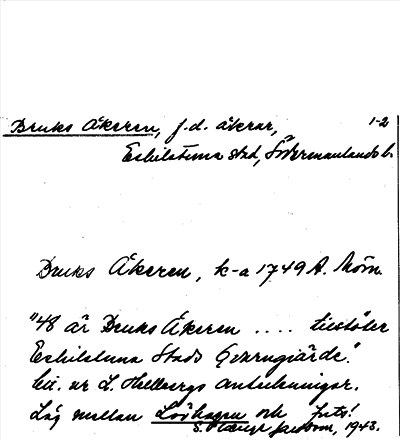 Bruks Åkeren, f.d. åkrar, 1-2
Eskilstuna stad, Södermanlands l.
Bruks Åkeren, k-a 1749 A.
"48 är Bruks Åkeren .... tilstöter
Eskilstuna Stads Qvarngiärde".
Cit. ur L. Hellbergs anteckningar.
Låg mellan Löthagen och
1943.